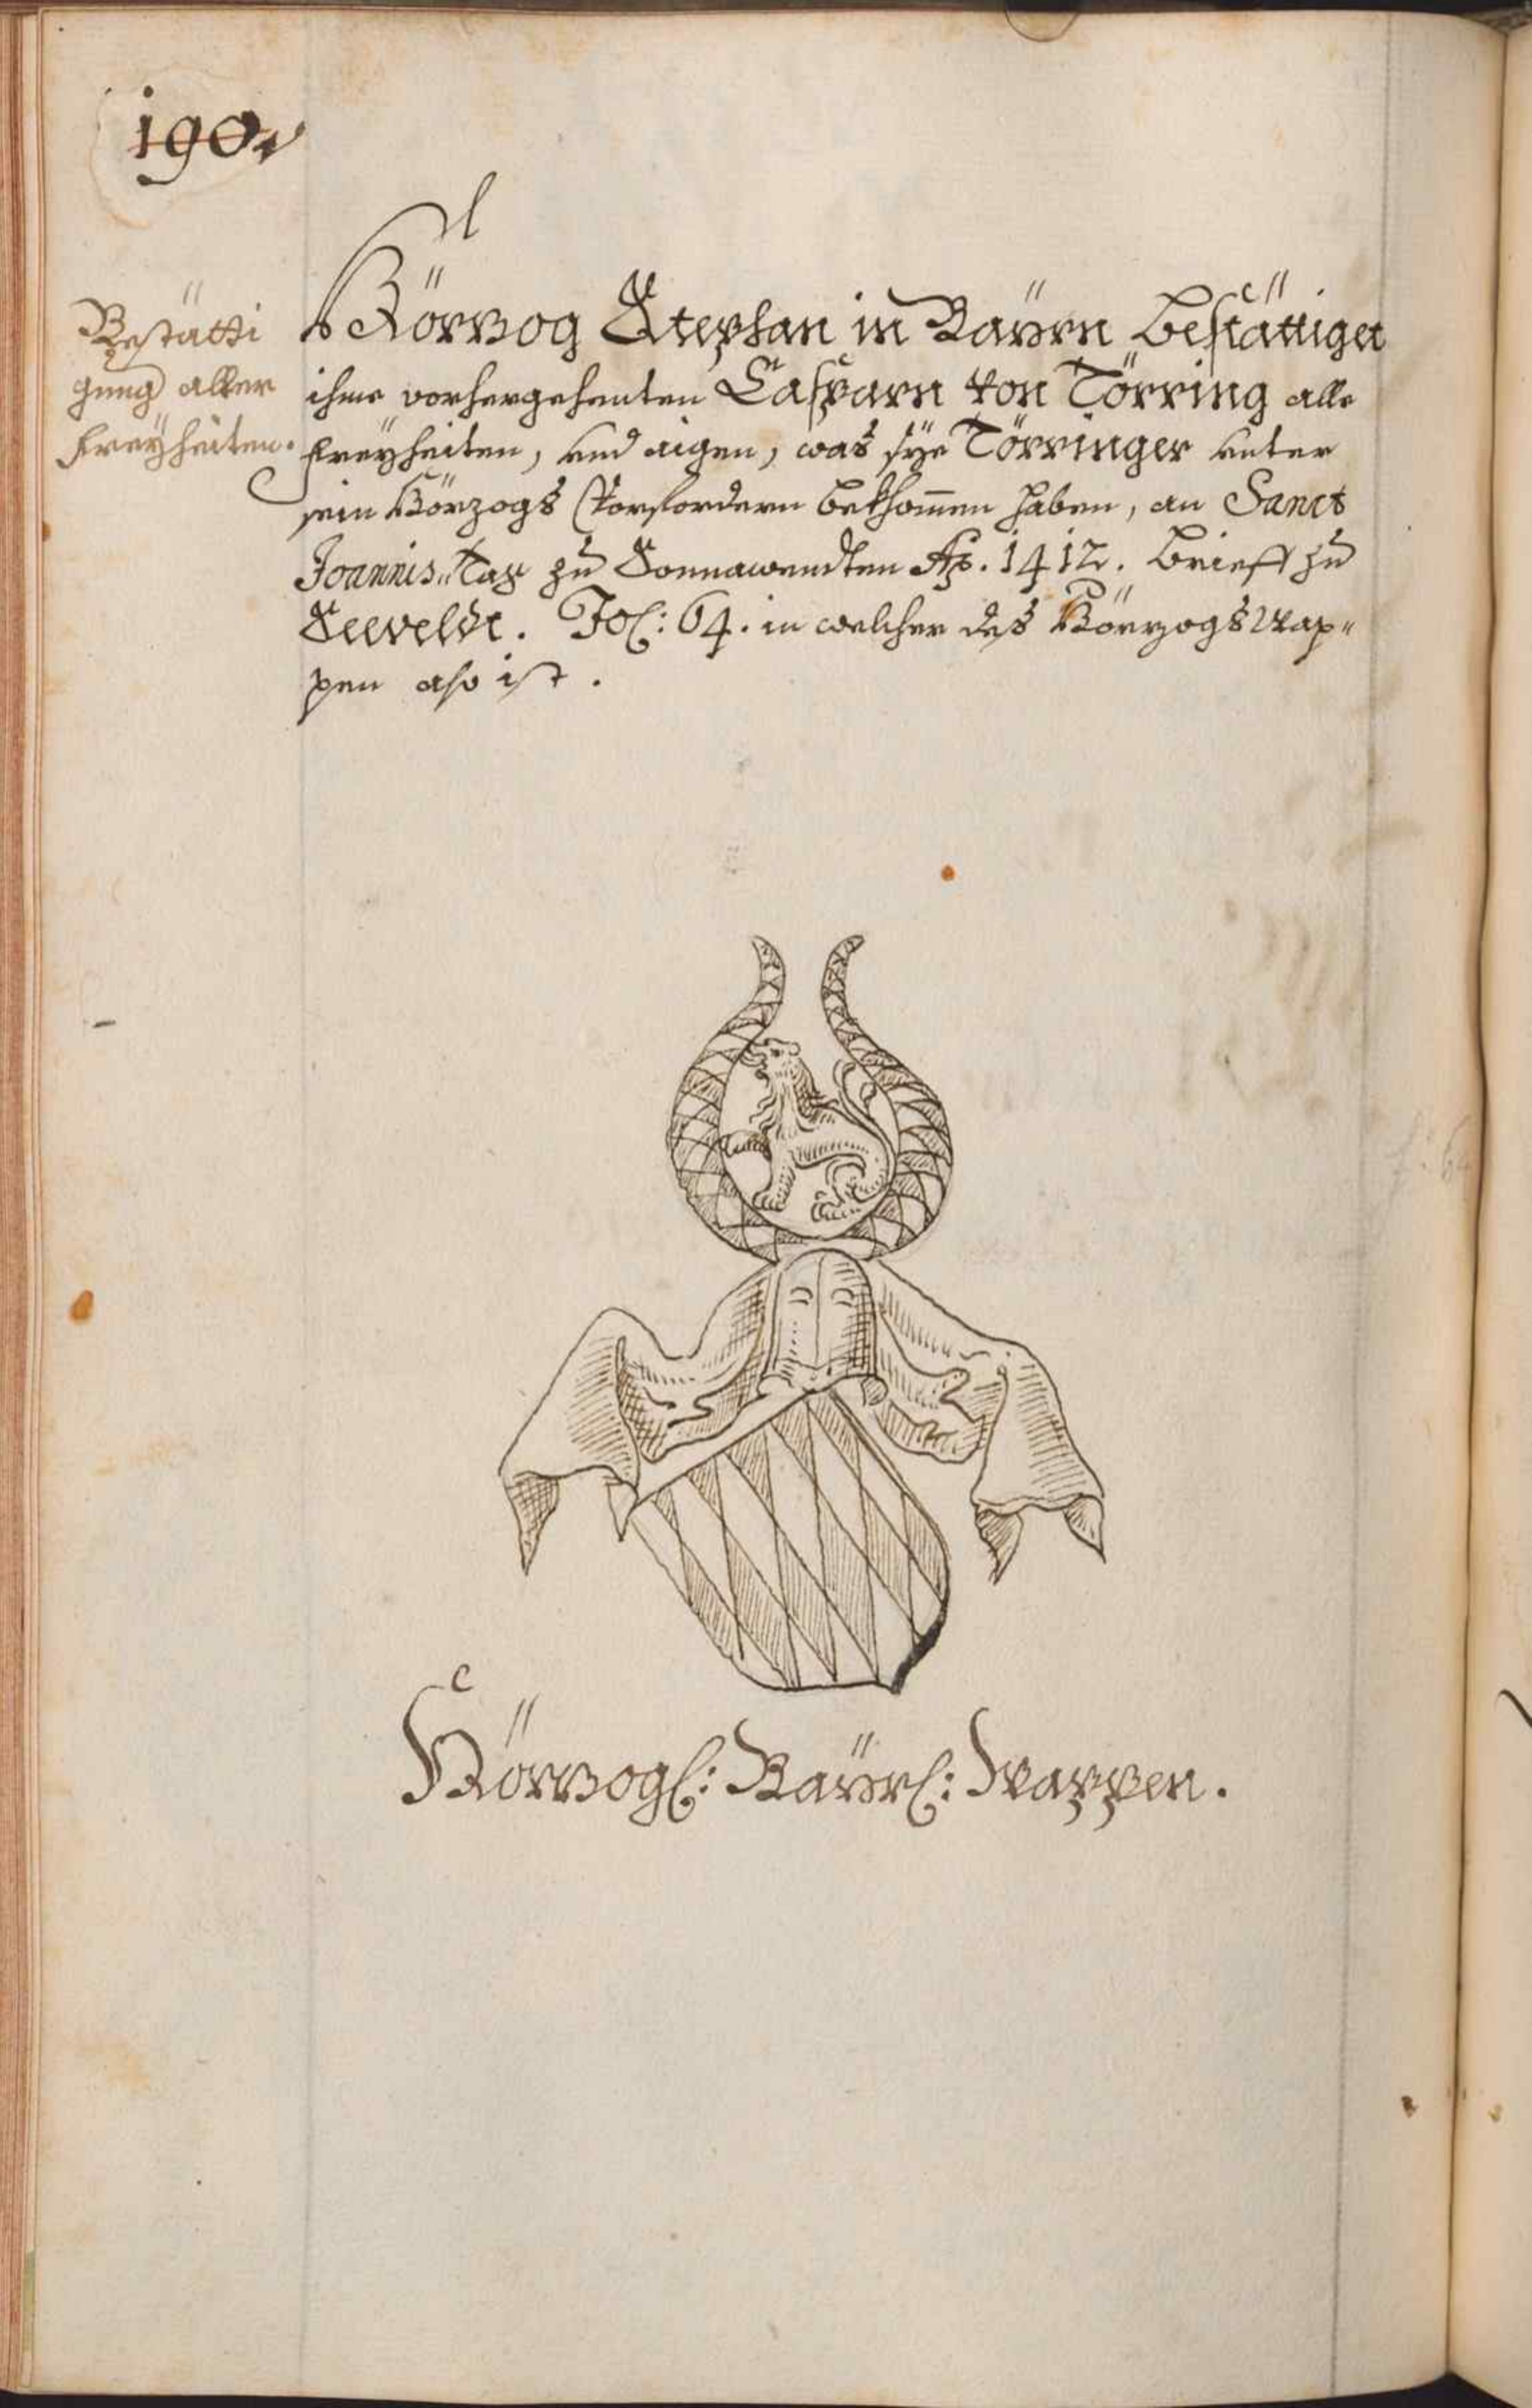 190.
Bestätti
gung aller
freÿheiten.
Hörzog Stephan in Baÿrn bestättiget
ihme vorhergehenten Casparn von Törring alle
freÿheiten, und aigen, was sÿe Törringer unter
sein Hörzogs Vorfordern bekhom̄en haben, an Sanct
Joannis Tag zu Sonnawendten Aº. 1412. brieff zu
Seeveldt. Fol: 64. in welcher des Hörzogs Wap„
pen also ist.
Hörzogl: Baÿrl: Wappen.